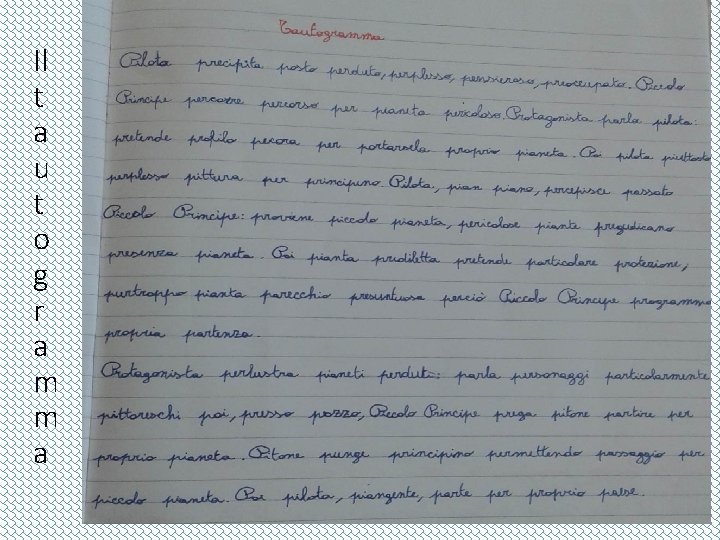 Il
t
a
u
t
o
g
r
a
m
m
a
Tautogramma
Pilota precipita posto perduto, perplesso, pensieroso, preoccupato. Piccolo
Principe percorre percorso per pianeta pericoloso. Protagonista parla pilota:
pretende profilo pecora per portarsela proprio pianeta. Poi pilota piuttosto
perplesso pittura per principino. Pilota, pian piano, percepisce passato
Piccolo Principe: proviene piccolo pianeta, pericolose piante pregiudicano
presenza pianeta. Poi pianta prediletta pretende particolare protezione,
purtroppo pianta parecchio presuntuosa perciò Piccolo Principe programma
propria partenza.
Protagonista perlustra pianeti perduti: parla personaggi particolarmente
pittoreschi poi, presso pozzo, Piccolo Principe prega pitone partire per
proprio pianeta. Pitone punge principino permettendo passaggio per
piccolo pianeta. Poi pilota, piangente, parte per proprio paese.